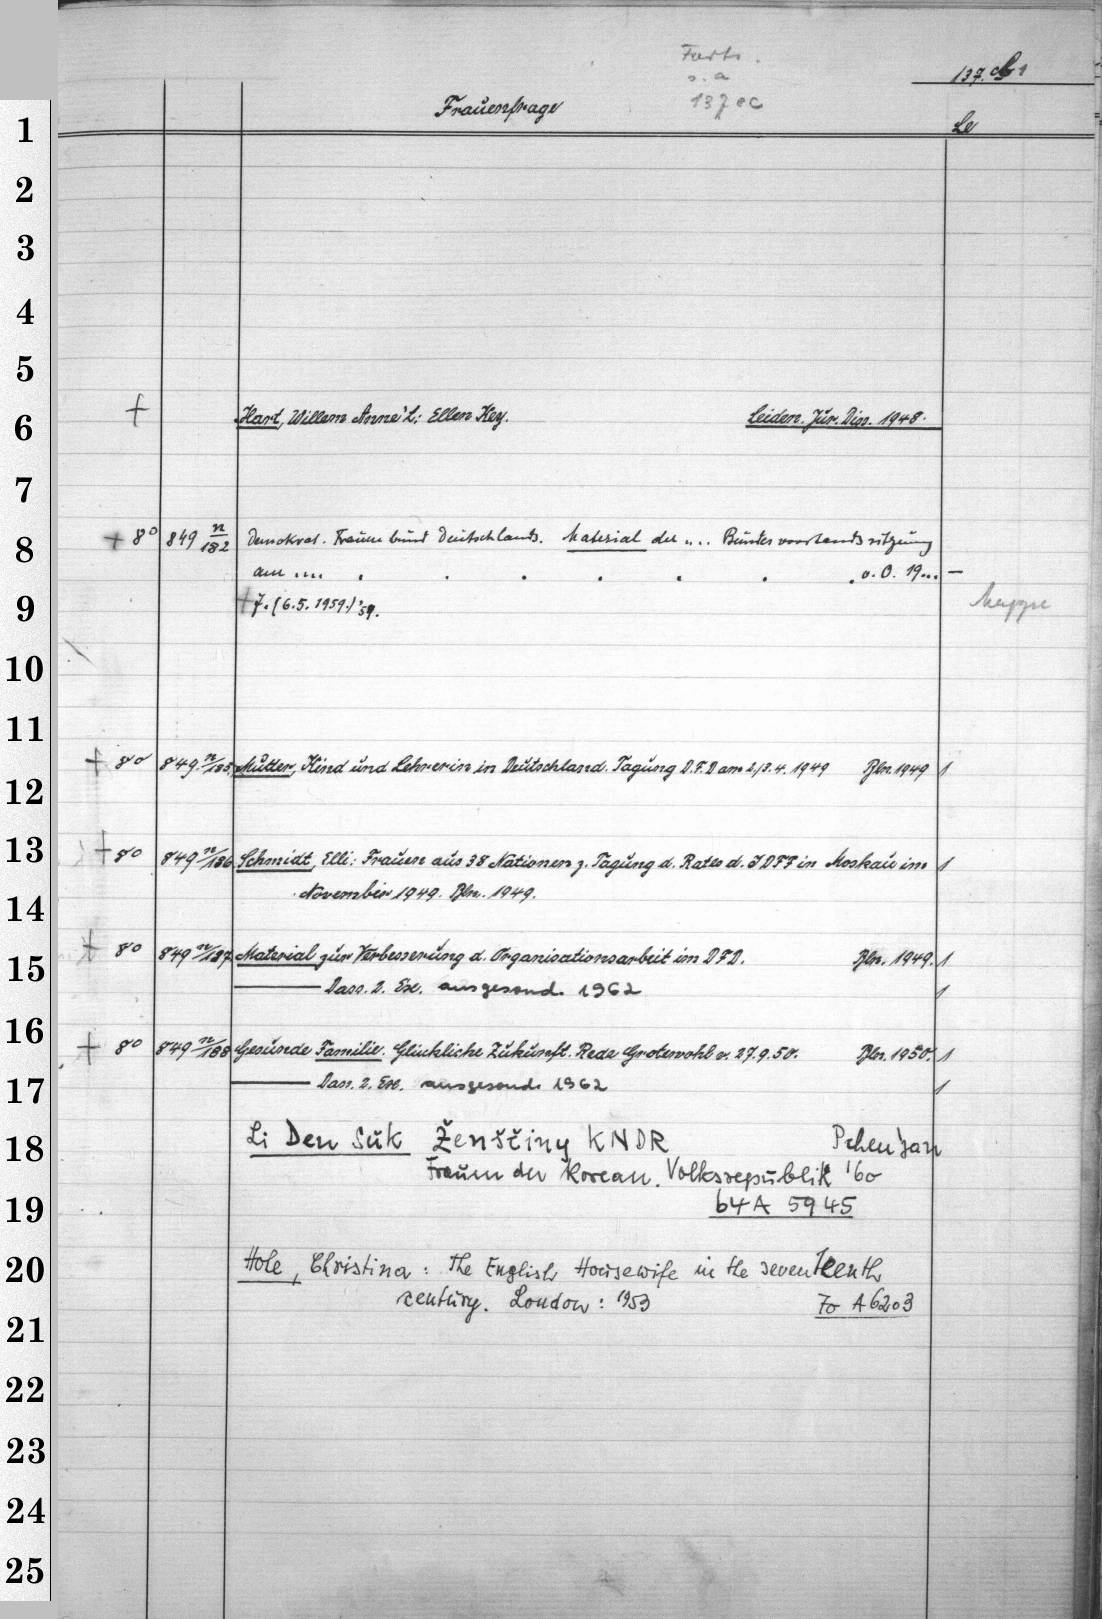 Forts.
s. a
137 ec
137.
Frauenfrage
Le
1
2
3
4
5
6
Hart, Willem Anne L: Ellen Key. Leiden. Jur. Diss. 1948.
7
8
+ 8° 849 n/182 Demokrat. Frauenbund Deutschlands. Material der .... Bundesvorstandssitzung
am .... . . . . . . . o. O. 19... —
9
7. (6.5.1959.) '59.
Mappe
10
11
12
+ 8° 849 n/185 Mutter, Kind und Lehrerin in Deutschland. Tagung D.F.D am 2/3.4.1949 Bln. 1949 1
13
+ 8° 849 n/186 Schmidt, Elli: Frauen aus 38 Nationen z. Tagung d. Rates d. IDFF in Moskau im 1
November 1949. Bln. 1949.
14
15
+ 8° 849 n/187 Material zur Verbesserung d. Organisationsarbeit im DFD. Bln. 1949. 1
——— Dass. 2. Ex. ausgesond. 1962 1
16
+ 8° 849 n/188 Gesunde Familie. Glückliche Zukunft. Rede Grotewohl v. 27.9.50. Bln. 1950. 1
17
——— Dass. 2. Ex. ausgesond. 1962 1
18
Li Den Suk Ženščiny KNDR Pchen'jan
Frauen der Korean. Volksrepublik '60
19
64 A 5945
20
Hole, Christina: The English Housewife in the seventeenth
century. London: 1953 70 A 6203
21
22
23
24
25